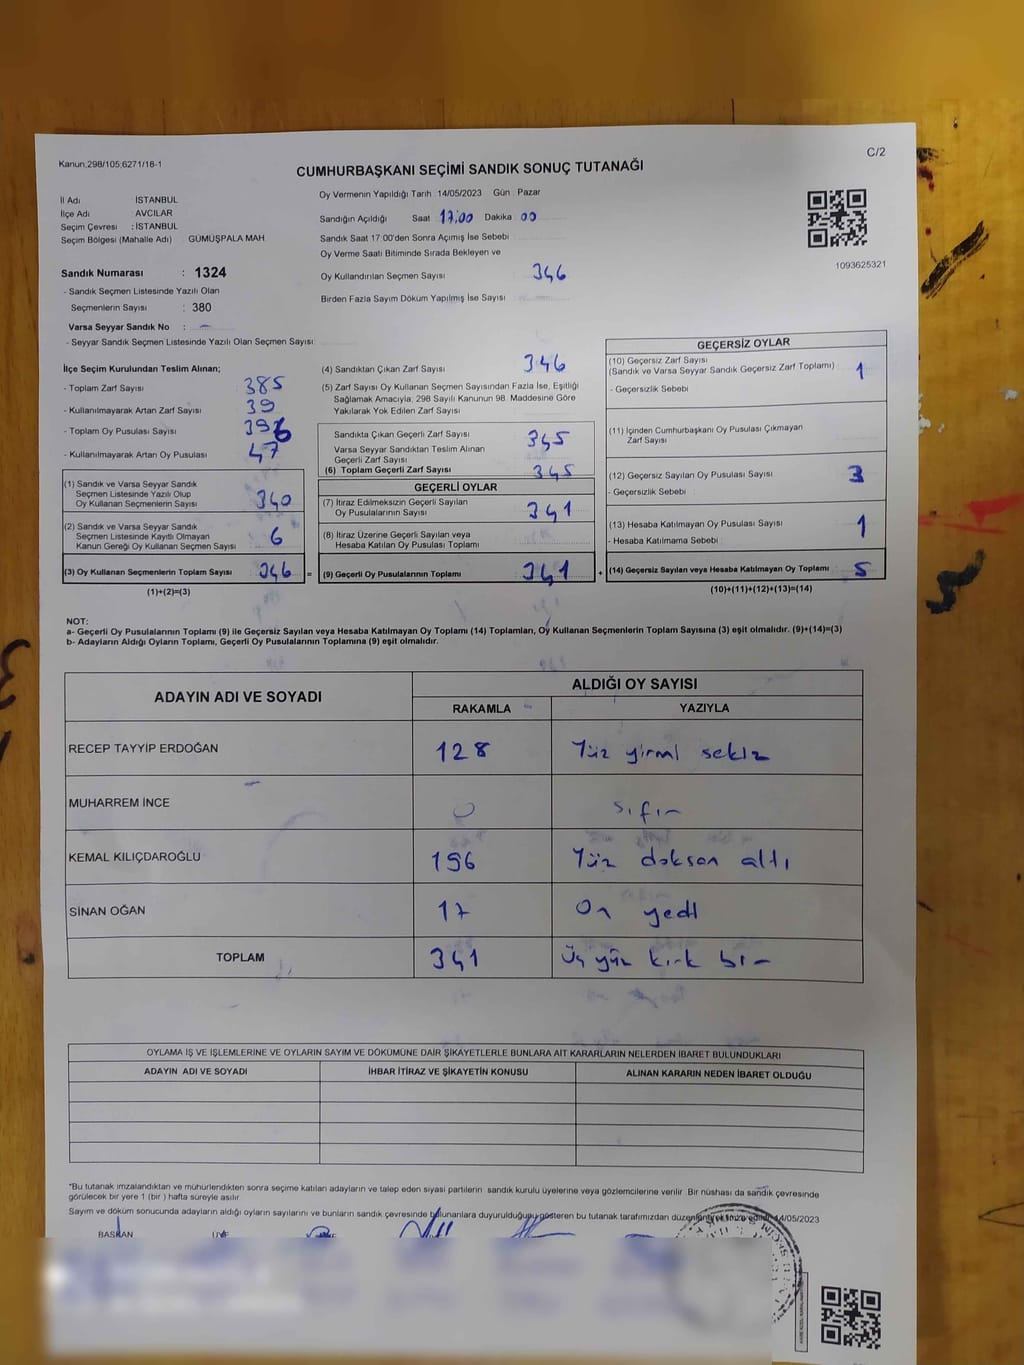 Kanun,298/105,6271/18-1
C/2
CUMHURBAŞKANI SEÇİMİ SANDIK SONUÇ TUTANAĞI
İl Adı İSTANBUL
İlçe Adı AVCILAR
Seçim Çevresi : İSTANBUL
Seçim Bölgesi (Mahalle Adı) GÜMÜŞPALA MAH.
Sandık Numarası : 1324
- Sandık Seçmen Listesinde Yazılı Olan
Seçmenlerin Sayısı : 380
Varsa Seyyar Sandık No : —
- Seyyar Sandık Seçmen Listesinde Yazılı Olan Seçmen Sayısı:
Oy Vermenin Yapıldığı Tarih 14/05/2023 Gün : Pazar
Sandığın Açıldığı Saat 17:00 Dakika 00
Sandık Saat 17:00'den Sonra Açımış İse Sebebi
Oy Verme Saati Bitiminde Sırada Bekleyen ve
Oy Kullandırılan Seçmen Sayısı 346
Birden Fazla Sayım Döküm Yapılmış İse Sayısı
1093625321
İlçe Seçim Kurulundan Teslim Alınan;
- Toplam Zarf Sayısı 385
- Kullanılmayarak Artan Zarf Sayısı 39
- Toplam Oy Pusulası Sayısı 396
- Kullanılmayarak Artan Oy Pusulası 47
(1) Sandık ve Varsa Seyyar Sandık
Seçmen Listesinde Yazılı Olup
Oy Kullanan Seçmenlerin Sayısı 340
(2) Sandık ve Varsa Seyyar Sandık
Seçmen Listesinde Kayıtlı Olmayan
Kanun Gereği Oy Kullanan Seçmen Sayısı 6
(3) Oy Kullanan Seçmenlerin Toplam Sayısı 346 =
(1)+(2)=(3)
(4) Sandıktan Çıkan Zarf Sayısı 346
(5) Zarf Sayısı Oy Kullanan Seçmen Sayısından Fazla İse, Eşitliği
Sağlamak Amacıyla; 298 Sayılı Kanunun 98. Maddesine Göre
Yakılarak Yok Edilen Zarf Sayısı
Sandıkta Çıkan Geçerli Zarf Sayısı 345
Varsa Seyyar Sandıktan Teslim Alınan
Geçerli Zarf Sayısı
(6) Toplam Geçerli Zarf Sayısı 345
GEÇERLİ OYLAR
(7) İtiraz Edilmeksizin Geçerli Sayılan
Oy Pusulalarının Sayısı 341
(8) İtiraz Üzerine Geçerli Sayılan veya
Hesaba Katılan Oy Pusulası Toplamı
(9) Geçerli Oy Pusulalarının Toplamı 341 +
GEÇERSİZ OYLAR
(10) Geçersiz Zarf Sayısı
(Sandık ve Varsa Seyyar Sandık Geçersiz Zarf Toplamı) 1
- Geçersizlik Sebebi
(11) İçinden Cumhurbaşkanı Oy Pusulası Çıkmayan
Zarf Sayısı
(12) Geçersiz Sayılan Oy Pusulası Sayısı 3
- Geçersizlik Sebebi
(13) Hesaba Katılmayan Oy Pusulası Sayısı 1
- Hesaba Katılmama Sebebi
(14) Geçersiz Sayılan veya Hesaba Katılmayan Oy Toplamı 5
(10)+(11)+(12)+(13)=(14)
NOT:
a- Geçerli Oy Pusulalarının Toplamı (9) ile Geçersiz Sayılan veya Hesaba Katılmayan Oy Toplamı (14) Toplamları, Oy Kullanan Seçmenlerin Toplam Sayısına (3) eşit olmalıdır. (9)+(14)=(3)
b- Adayların Aldığı Oyların Toplamı, Geçerli Oy Pusulalarının Toplamına (9) eşit olmalıdır.
ADAYIN ADI VE SOYADI ALDIĞI OY SAYISI
RAKAMLA YAZIYLA
RECEP TAYYİP ERDOĞAN 128 Yüz yirmi sekiz
MUHARREM İNCE 0 sıfır
KEMAL KILIÇDAROĞLU 196 Yüz doksan altı
SİNAN OĞAN 17 On yedi
TOPLAM 341 Üç yüz kırk bir
OYLAMA İŞ VE İŞLEMLERİNE VE OYLARIN SAYIM VE DÖKÜMÜNE DAİR ŞİKAYETLERLE BUNLARA AİT KARARLARIN NELERDEN İBARET BULUNDUKLARI
ADAYIN ADI VE SOYADI İHBAR İTİRAZ VE ŞİKAYETİN KONUSU ALINAN KARARIN NEDEN İBARET OLDUĞU
*Bu tutanak imzalandıktan ve mühürlendikten sonra seçime katılan adayların ve talep eden siyasi partilerin sandık kurulu üyelerine veya gözlemcilerine verilir. Bir nüshası da sandık çevresinde
görülecek bir yere 1 (bir) hafta süreyle asılır
Sayım ve döküm sonucunda adayların aldığı oyların sayılarını ve bunların sandık çevresinde bulunanlara duyurulduğunu gösteren bu tutanak tarafımızdan 14/05/2023
BAŞKAN ÜYE